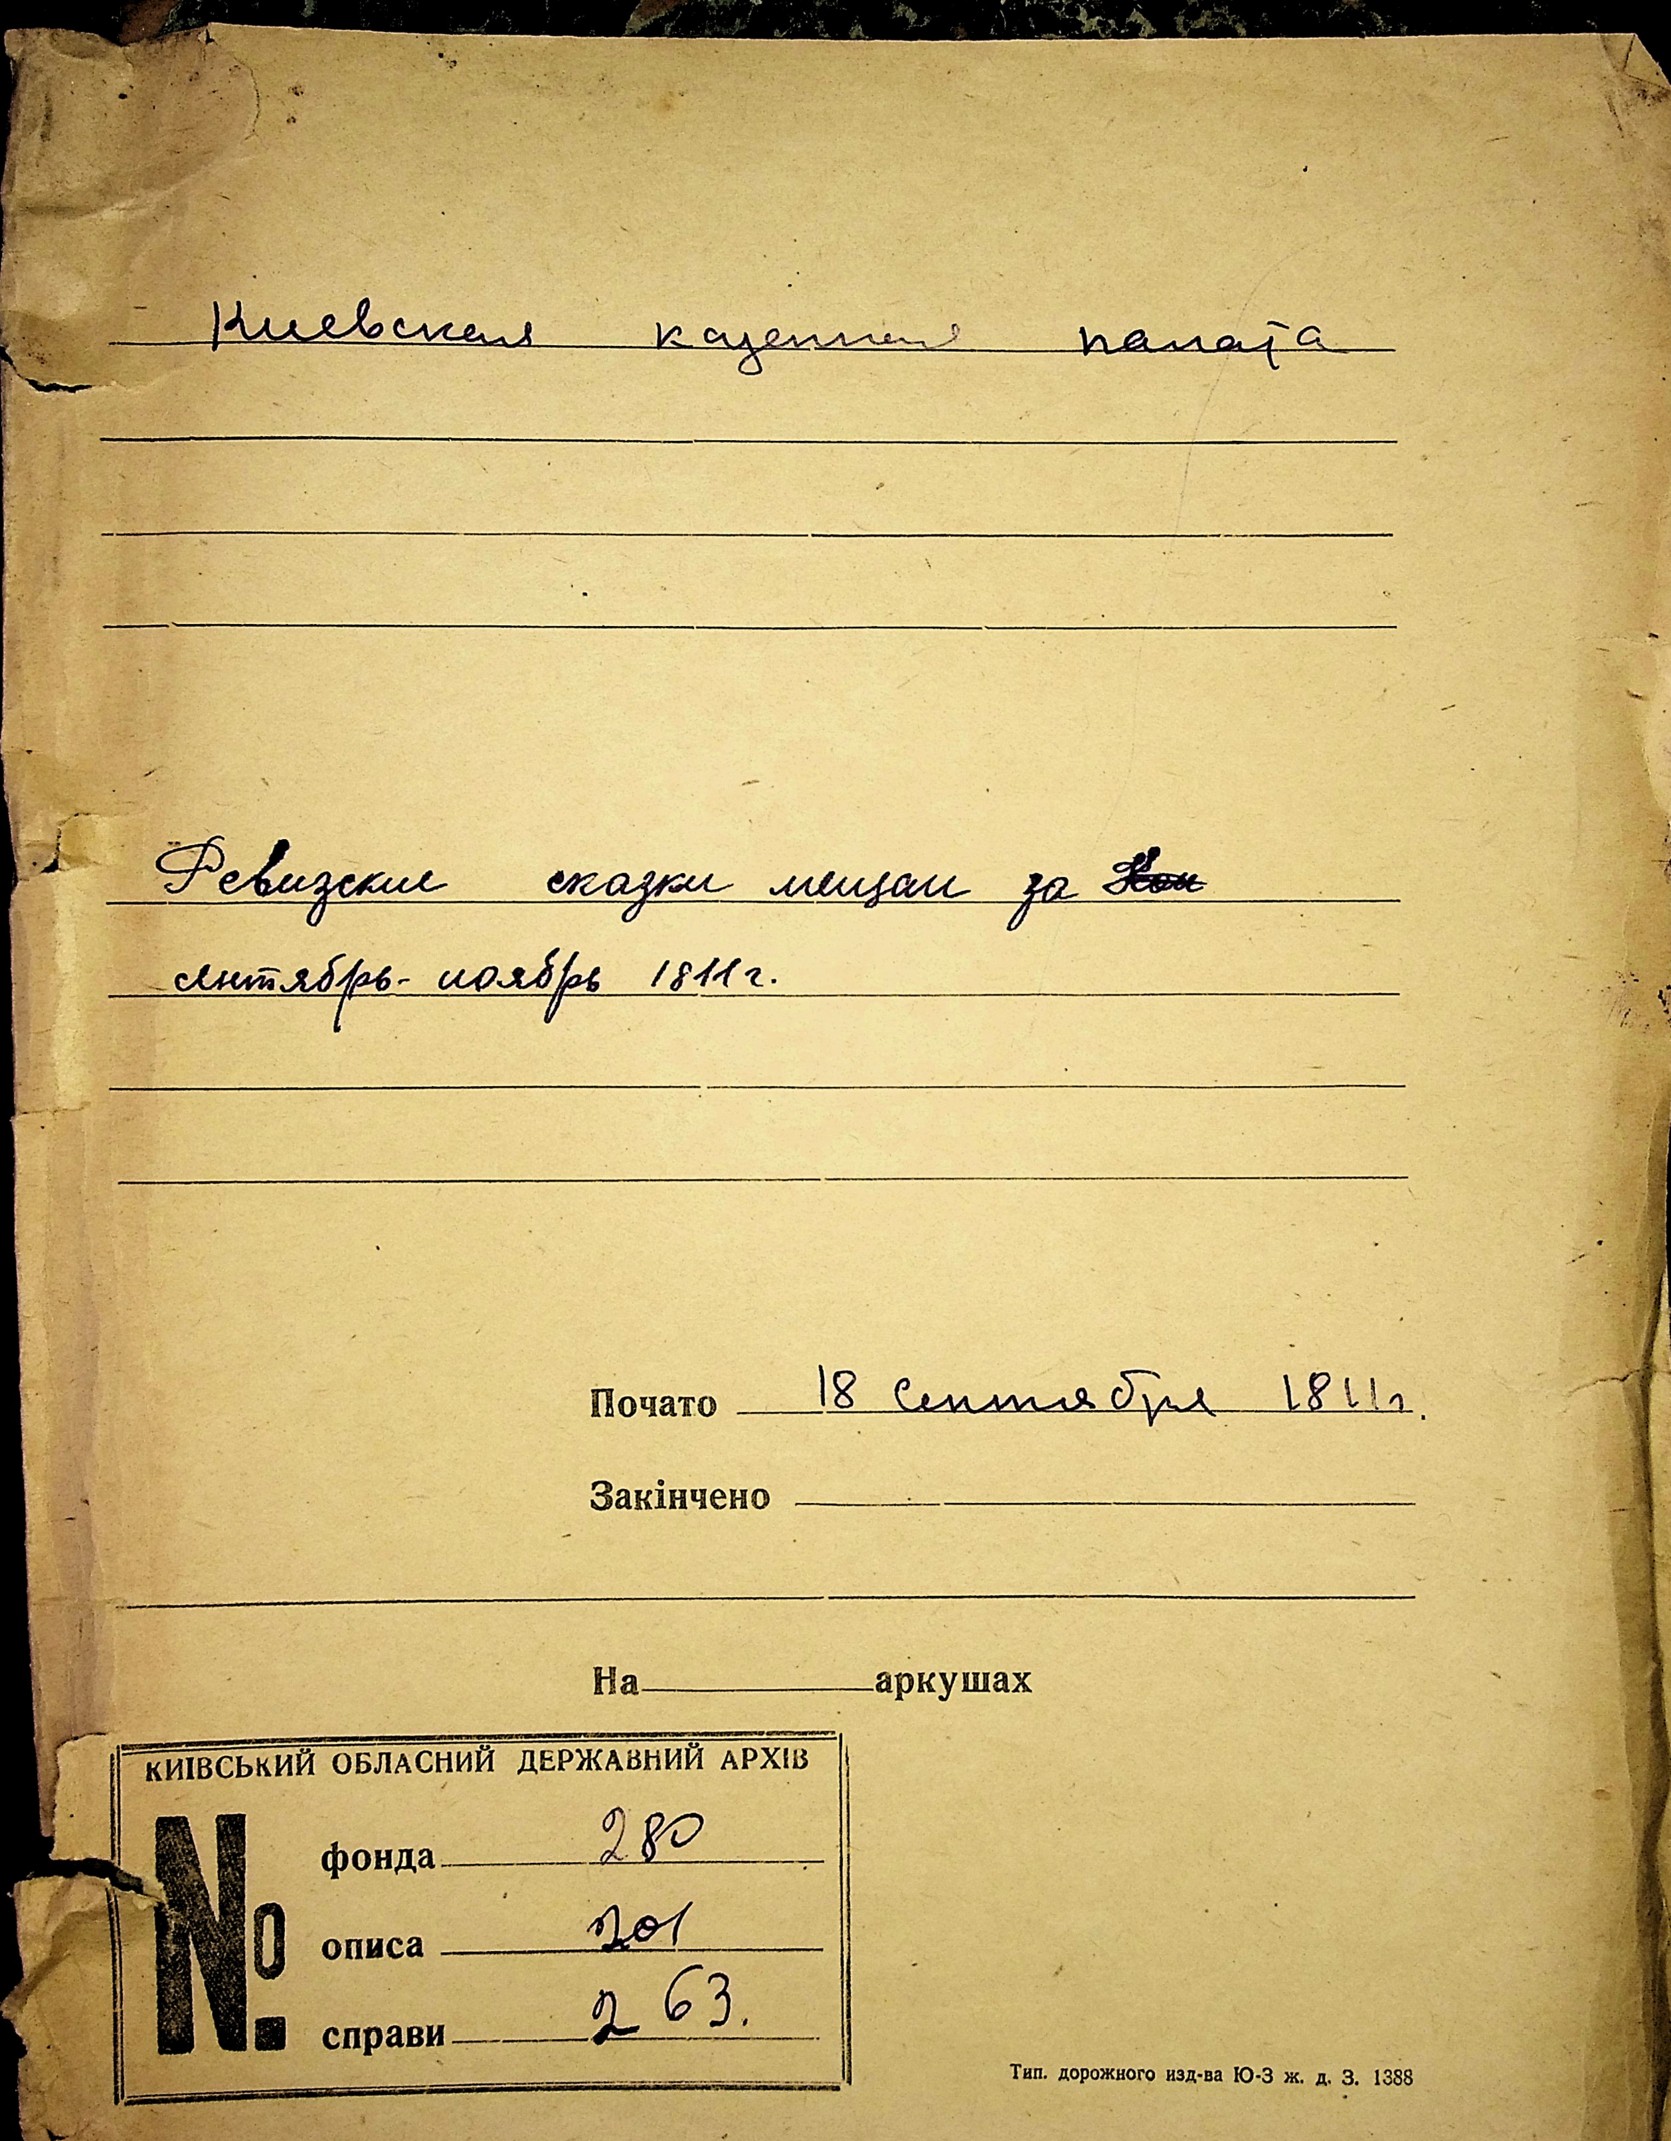 Киевская казенная палата
Ревизские сказки мещан за
сентябрь-ноябрь 1811г.
Почато 18 сентября 1811г.
Закінчено
На аркушах
КИЇВСЬКИЙ ОБЛАСНИЙ ДЕРЖАВНИЙ АРХІВ
№
фонда 280
описа 201
справи 263.
Тип. дорожного изд-ва Ю-З ж. д. З. 1388